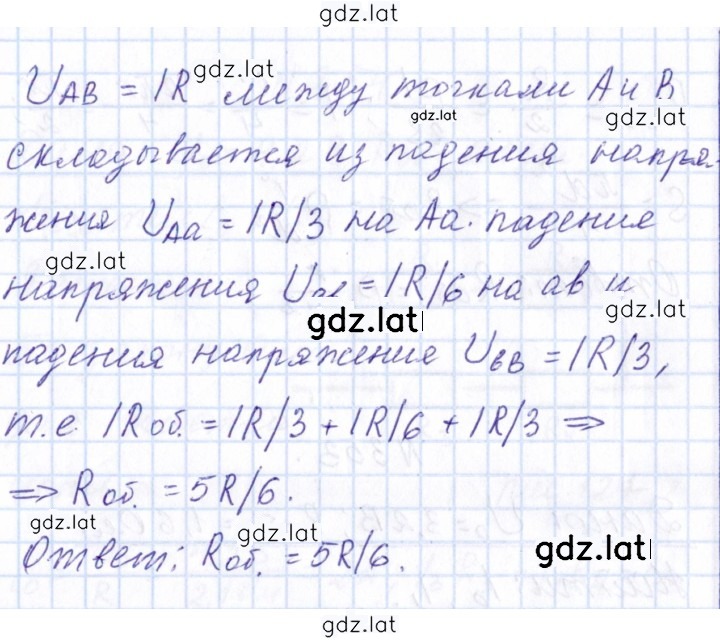 gdz.lat
U_AB = IR gdz.lat между точками A и B
gdz.lat gdz.lat
складывается из падения напря-
жения U_Aa = IR/3 на Aa. падения
gdz.lat
напряжения = IR/6 на ав и
gdz.lat gdz.lat
падения напряжения U_вB = IR/3,
т.е. IR об. = IR/3 + IR/6 + IR/3 =>
=> R об. = 5R/6.
gdz.lat gdz.lat gdz.lat
Ответ: R об. = 5R/6.
gdz.lat